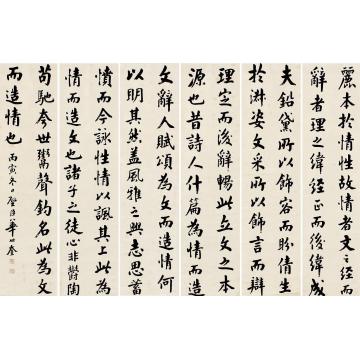 麗本於情性故情者文之經
辭者理之緯經正而後緯成
夫鉛黛所以飾容而盼倩生
於淑姿文采所以飾言而辯
理定而後辭暢此立文之本
源也昔詩人什篇為情而造
文辭人賦頌為文而造情何
以明其然蓋風雅之興志思蓄
憤而吟詠性情以諷其上此為
情而造文也諸子之徒心非鬱陶
苟馳夸世鬻聲釣名此為文
而造情也
丙寅冬日 璧臣華世奎